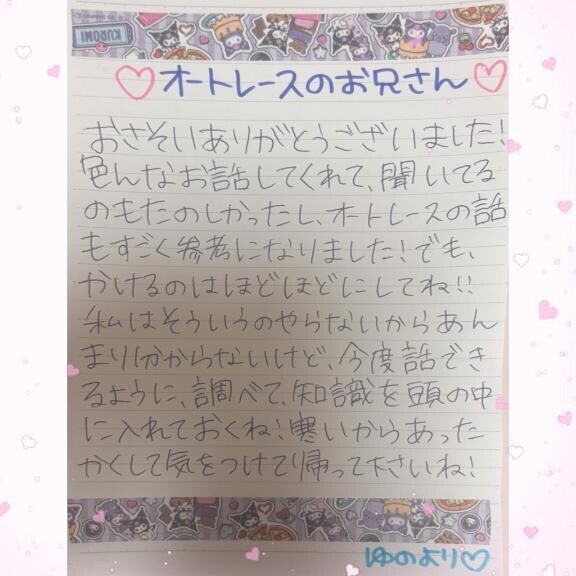 KUROMI
♡オートレースのお兄さん♡
おさそいありがとうございました!
色んなお話してくれて、聞いてる
のもたのしかったし、オートレースの話
もすごく参考になりました!でも、
かけるのはほどほどにしてね!!
私はそういうのやらないからあん
まり分からないけど、今度話でき
るように、調べて、知識を頭の中
に入れておくね!寒いからあった
かくして気をつけて帰って下さいね!
ゆのより♡